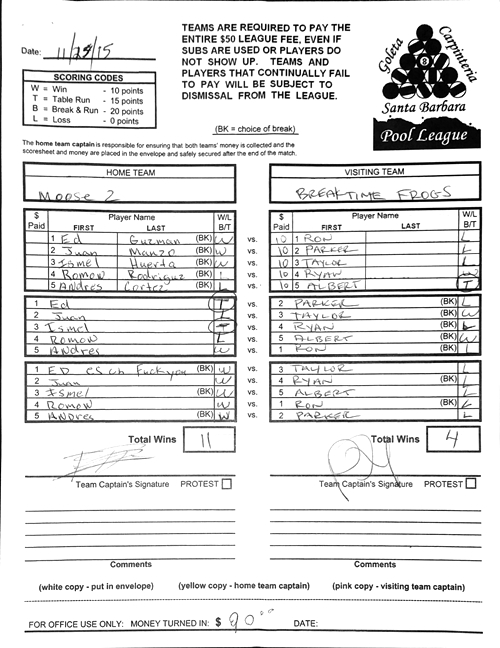 TEAMS ARE REQUIRED TO PAY THE
ENTIRE $50 LEAGUE FEE, EVEN IF
SUBS ARE USED OR PLAYERS DO
NOT SHOW UP. TEAMS AND
PLAYERS THAT CONTINUALLY FAIL
TO PAY WILL BE SUBJECT TO
DISMISSAL FROM THE LEAGUE.
Date: 11/24/15
SCORING CODES
W = Win - 10 points
T = Table Run - 15 points
B = Break & Run - 20 points
L = Loss - 0 points
Goleta Carpinteria
8
Santa Barbara
Pool League
(BK = choice of break)
The home team captain is responsible for ensuring that both teams' money is collected and the
scoresheet and money are placed in the envelope and safely secured after the end of the match.
HOME TEAM VISITING TEAM
Moose 2 BREAKTIME FROGS
$ Paid Player Name FIRST LAST W/L B/T $ Paid Player Name FIRST LAST W/L B/T
1 Ed Guzman (BK) W vs. 10 1 RON L
2 Juan Manzo (BK) W vs. 10 2 PARKER L
3 Ismel Huerta (BK) W vs. 10 3 TAYLOR L
4 Romow Rodriguz (BK) L vs. 10 4 RYAN W
5 Andres Cortez (BK) L vs. 10 5 ALBERT T
1 Ed T vs. 2 PARKER (BK) L
2 Juan L vs. 3 TAYLOR (BK) W
3 Ismel T vs. 4 RYAN (BK) L
4 Romow L vs. 5 ALBERT (BK) W
5 Andres W vs. 1 RON (BK) L
1 ED (BK) W vs. 3 TAYLOR L
2 Juan W vs. 4 RYAN (BK) L
3 Ismel (BK) W vs. 5 ALBERT L
4 Romow W vs. 1 RON (BK) L
5 Andres (BK) W vs. 2 PARKER L
Total Wins 11 Total Wins 4
Team Captain's Signature PROTEST Team Captain's Signature PROTEST
Comments Comments
(white copy - put in envelope) (yellow copy - home team captain) (pink copy - visiting team captain)
FOR OFFICE USE ONLY: MONEY TURNED IN: $ 90.00 DATE: